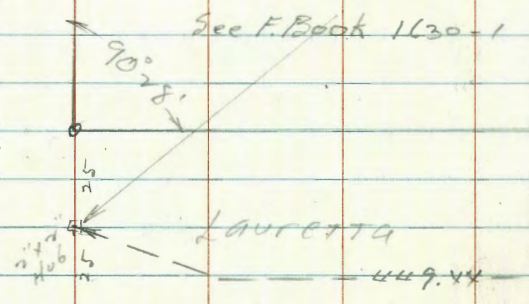 See F. Book 1630-1
90° 28'
25
Lauretta
2"x2"
Hub
25
449.44